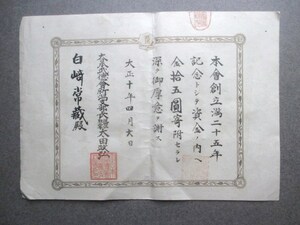 本會創立滿二十五年
記念トシテ資金ノ内ヘ
金拾五圓寄附セラレ
深ク御厚意ヲ謝ス
大正十年四月六日
大日本武徳會
白﨑常藏殿